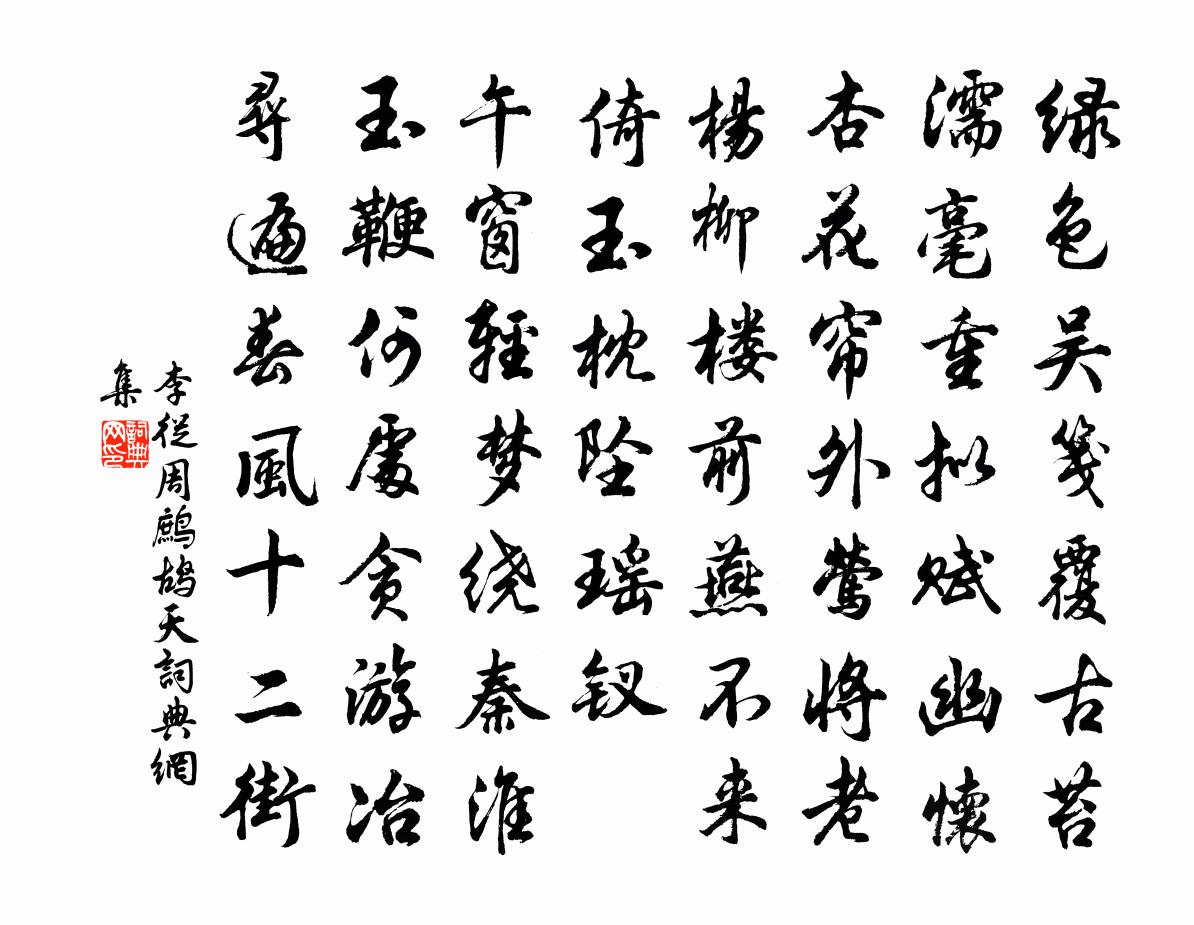 绿色吴笺覆古苔
濡毫重拟赋幽怀
杏花帘外莺将老
楊柳楼前燕不来
倚玉枕坠瑶钗
午窗輕梦绕秦淮
玉鞭何處贪游冶
尋遍春風十二街
李從周鷓鴣天詞典網
集
詞典网印